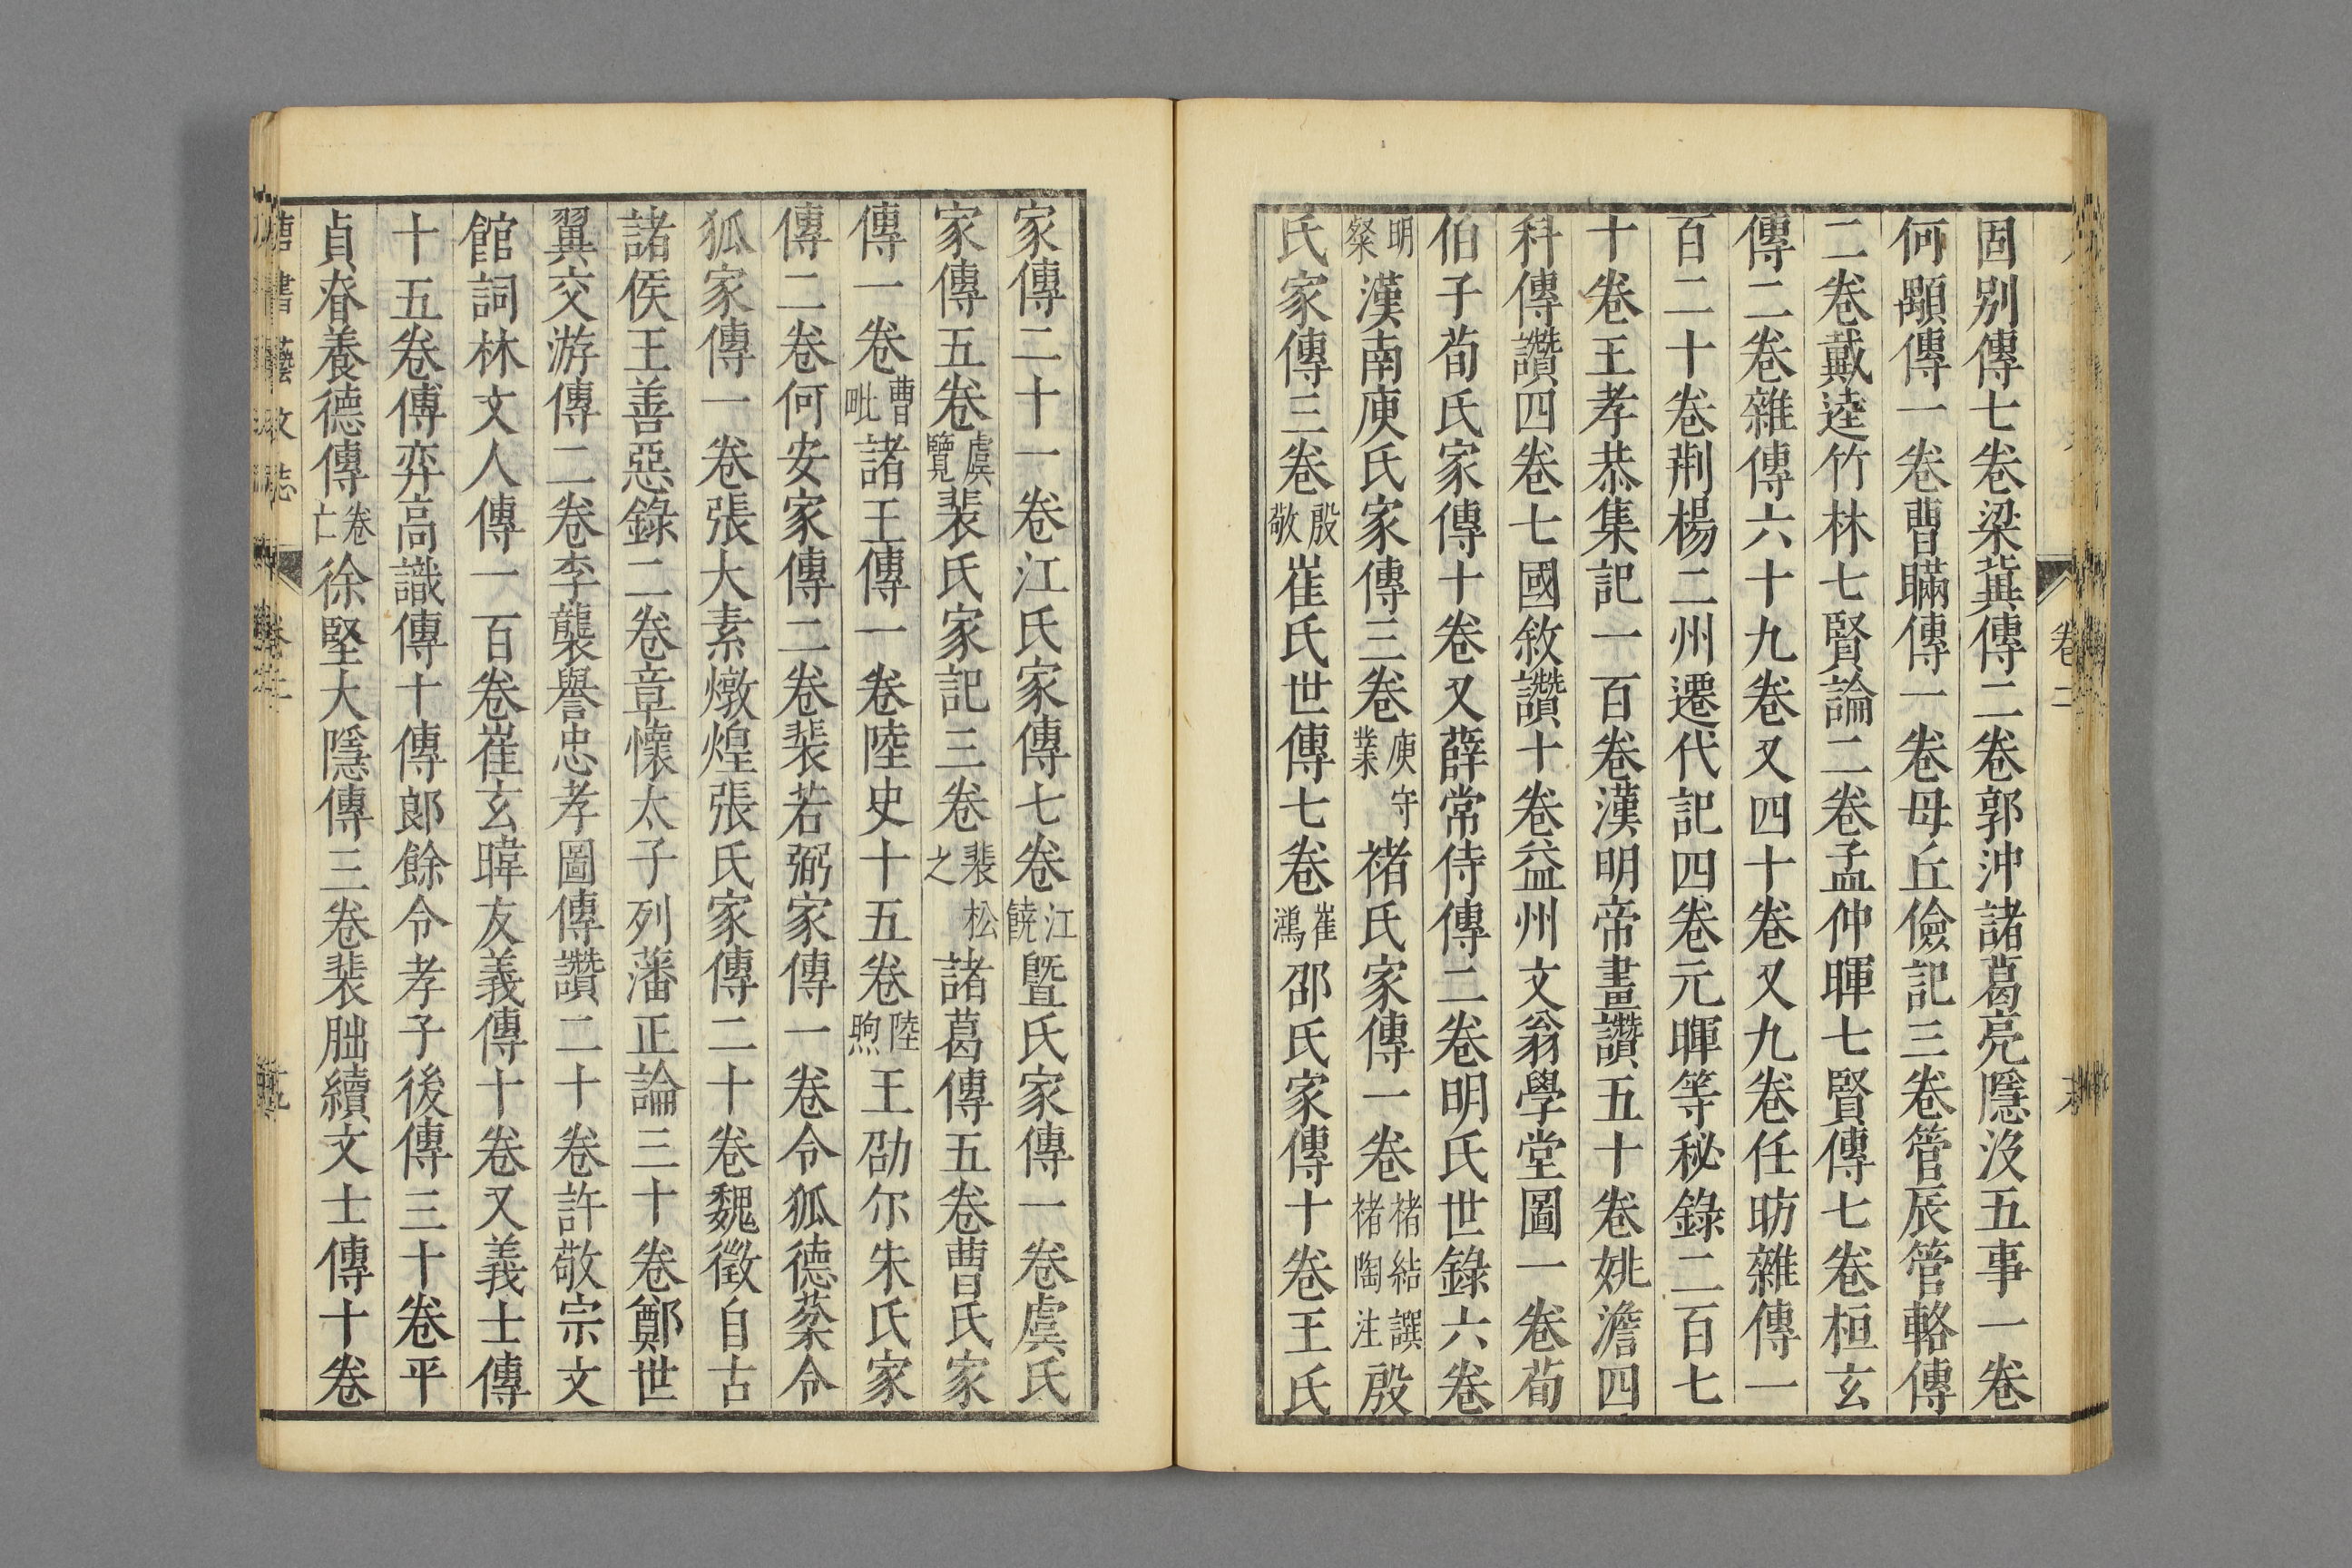 固别傳七卷梁冀傳二卷郭沖諸葛亮隱沒五事一卷
何顒傳一卷曹瞞傳一卷母丘儉記三卷管辰管輅傳
二卷戴逵竹林七賢論二卷孟仲暉七賢傳七卷桓玄
傳二卷雜傳六十九卷又四十卷又九卷任昉雜傳一
百二十卷荆楊二州遷代記四卷元暉等秘錄二百七
十卷王孝恭集記一百卷漢明帝畫讚五十卷姚澹四
科傳讚四卷七國敘讚十卷益州文翁學堂圖一卷荀
伯子荀氏家傳十卷又薛常侍傳二卷明氏世錄六卷
明粲漢南庾氏家傳三卷庾守業褚氏家傳一卷褚結譔褚陶注殷
氏家傳三卷殷敬崔氏世傳七卷崔鴻邵氏家傳十卷王氏
卷二
家傳二十一卷江氏家傳七卷江饒曁氏家傳一卷虞氏
家傳五卷虞覽裴氏家記三卷裴松之諸葛傳五卷曹氏家
傳一卷曹毗諸王傳一卷陸史十五卷陸煦王劭尔朱氏家
傳二卷何妥家傳二卷裴若弼家傳一卷令狐德棻令
狐家傳一卷張大素燉煌張氏家傳二十卷魏徵自古
諸侯王善惡錄二卷章懷太子列藩正論三十卷鄭世
翼交游傳二卷李襲譽忠孝圖傳讚二十卷許敬宗文
館詞林文人傳一百卷崔玄暐友義傳十卷又義士傳
十五卷傅弈高識傳十傳郎餘令孝子後傳三十卷平
貞眘養德傳卷亡徐堅大隱傳三卷裴朏續文士傳十卷
唐書藝文志